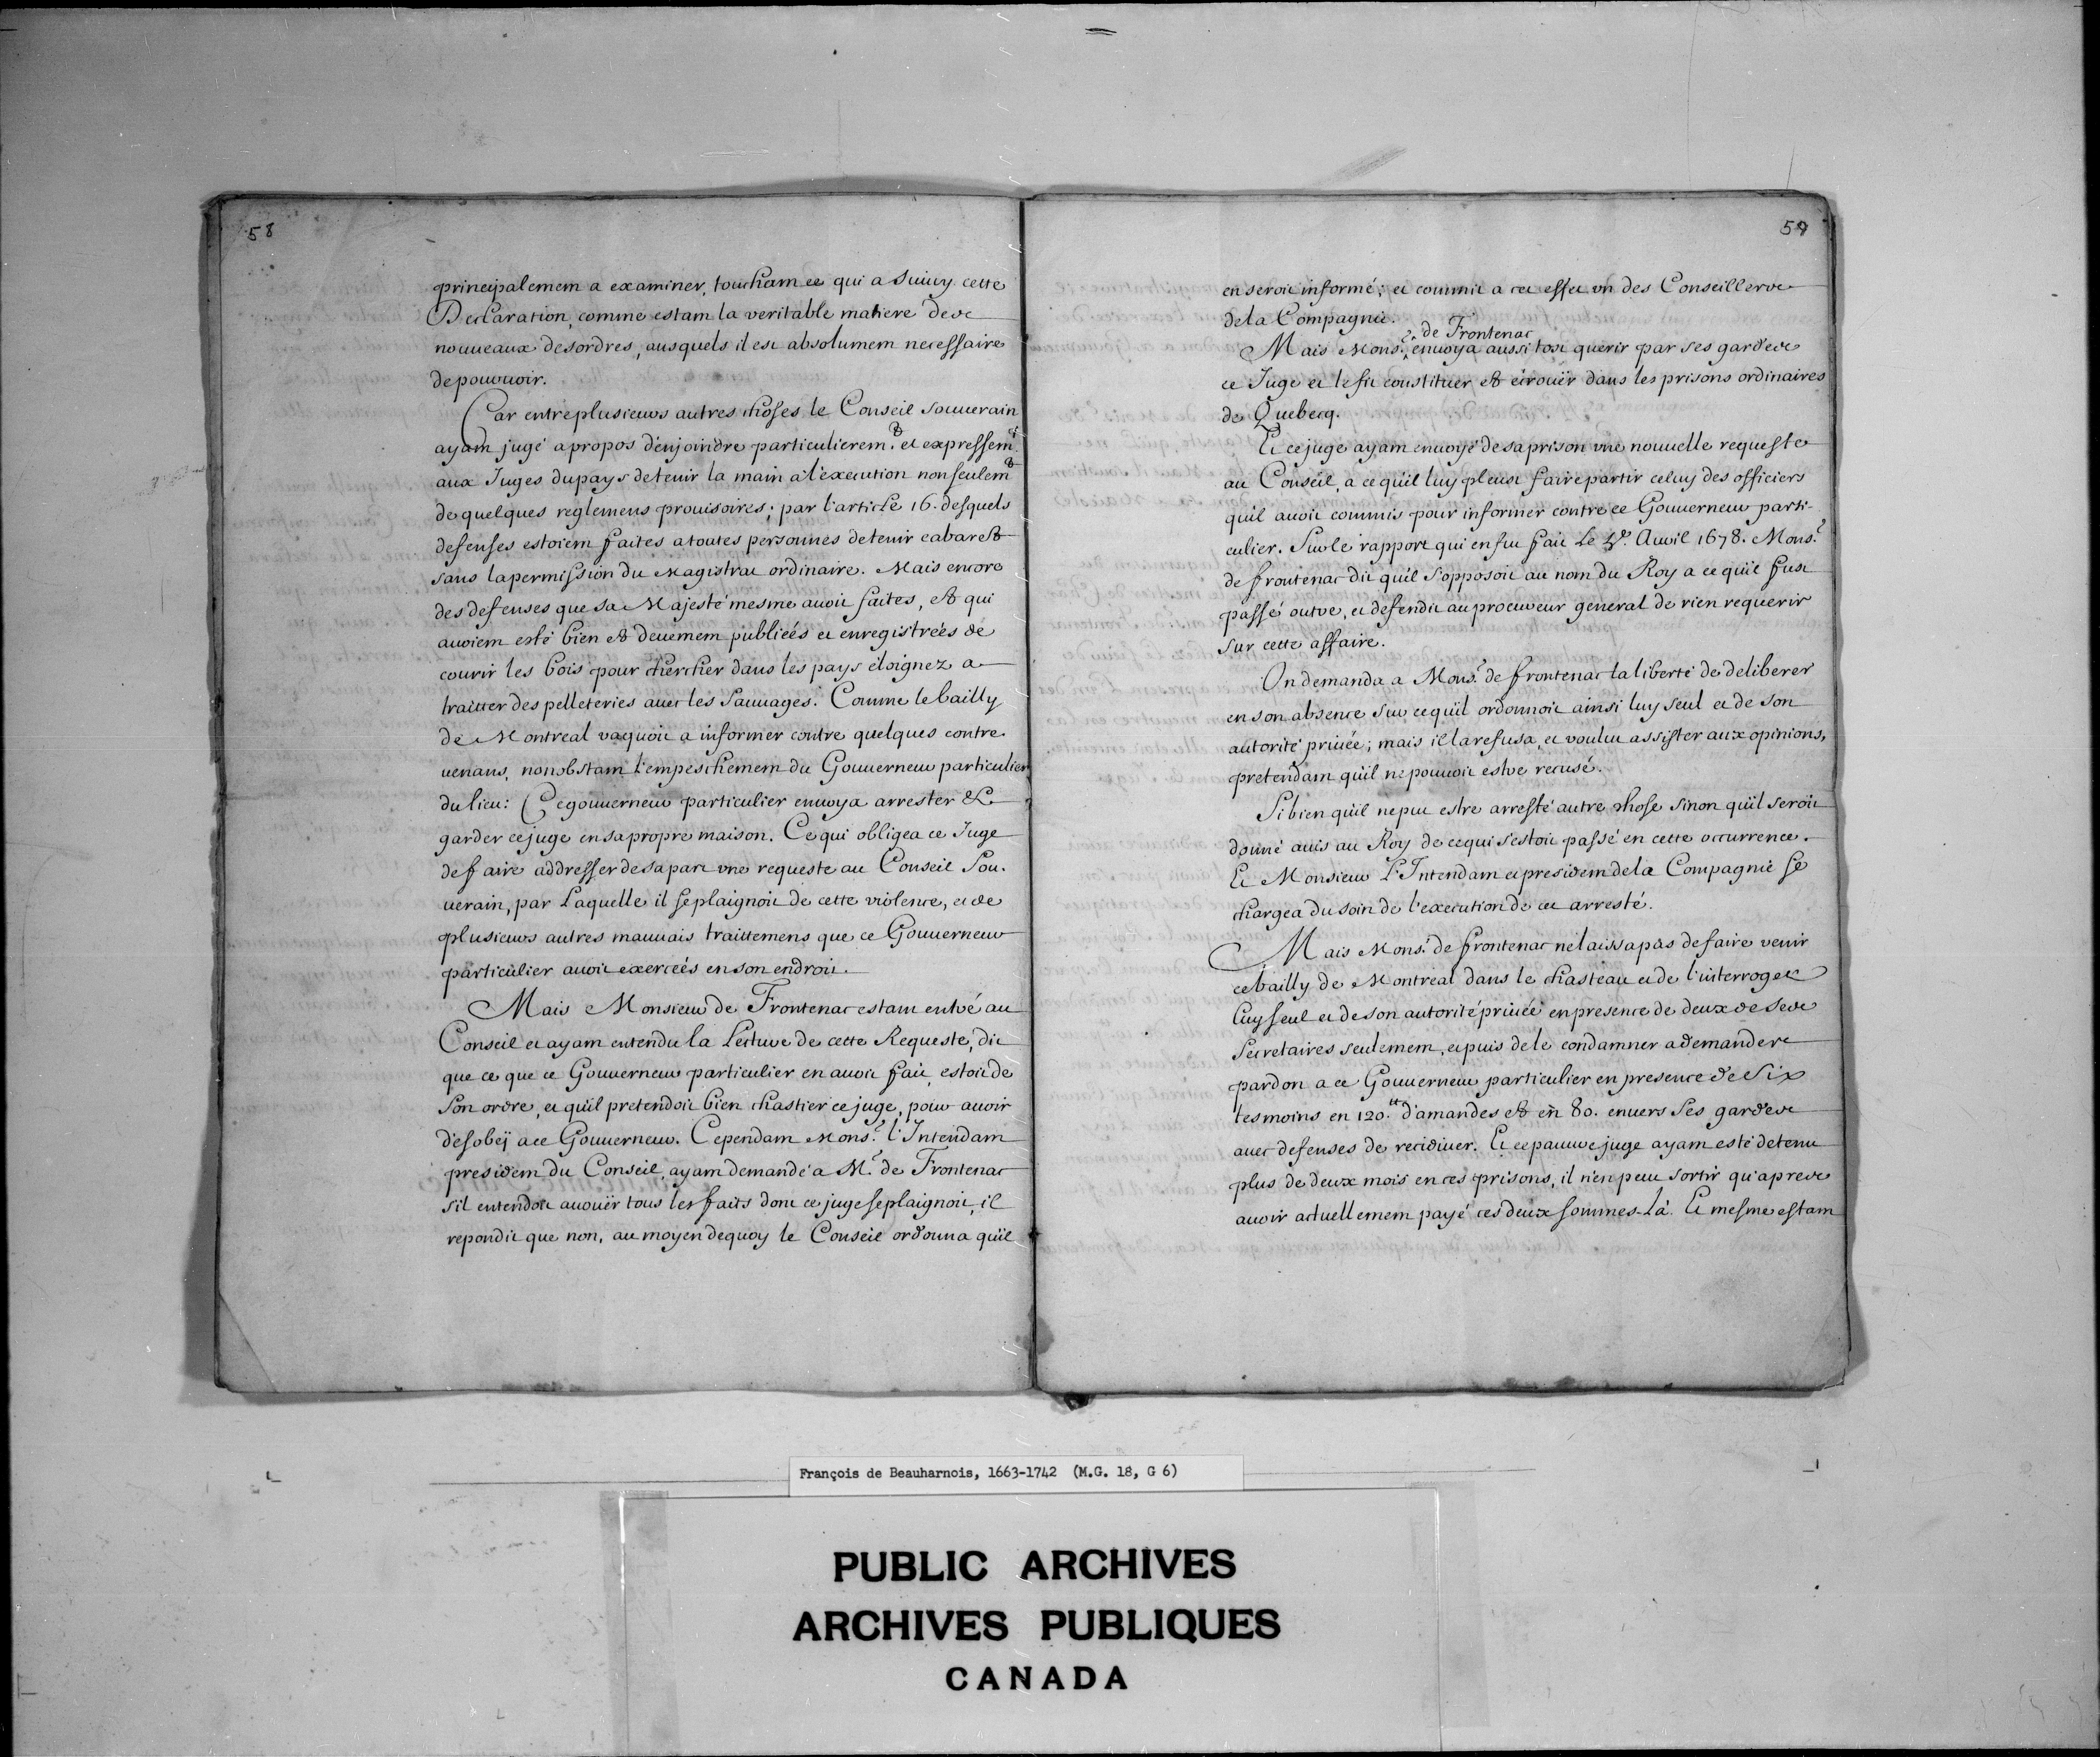 58
principalement a examiner, touchant ce qui a suivy cette
Declaration, comme estant la veritable matiere des
nouveaux desordres, ausquels il est absolument necessaire
de pourvoir.
Car entre plusieurs autres choses le Conseil souverain
ayant jugé apropos d'enjoindre particulierem.t et expressem.t
aux Juges du pays de tenir la main a l'execution non seulem.t
de quelques reglemens provisoires; par l'article 16. desquels
defenses estoient faites a toutes personnes de tenir cabaret
sans la permission du Magistrat ordinaire. Mais encore
des defenses que sa Majesté mesme avoit faites, et qui
avoient esté bien et deuement publieés et enregistreés de
courir les bois pour chercher dans les pays éloignez a
traitter des pelleteries avec les Sauvages. Comme le bailly
de Montreal vaquoit a informer contre quelques contre
venans, nonobstant l'empeschement du Gouverneur particulier
du lieu: Ce gouverneur particulier envoya arrester &
garder ce juge en sa propre maison. Ce qui obligea ce Juge
de faire addresser de sa part une requeste au Conseil Sou.
verain, par Laquelle il se plaignoit de cette violence, et de
plusieurs autres mauvais traittemens que ce Gouverneur
particulier avoit exerceés en son endroit.
Mais Monsieur de Frontenac estant entré au
Conseil et ayant entendu la Lecture de cette Requeste, dit
que ce que ce Gouverneur particulier en avoit fait, estoit de
son ordre, et qu'il pretendoit bien chastier ce juge, pour avoir
desobeÿ a ce Gouverneur. Cependant Mons.r l'Intendant
president du Conseil, ayant demandé a M.r de Frontenac
s'il entendoit avouër tous les faits dont ce juge se plaignoit, il
repondit que non, au moyen dequoy le Conseil ordonna qu'il
59
en seroit informé; et commit a cet effet un des Conseillers
de la Compagnie.
de Frontenac
Mais Mons.r envoya aussi tost querir par ses gardes
ce Juge et le fit constituer et écrouër dans les prisons ordinaires
de Quebecq.
Et ce juge ayant envoyé de sa prison une nouvelle requeste
au Conseil, a ce qu'il luy pleust faire partir celuy des officiers
qu'il avoit commis pour informer contre ce Gouverneur parti-
culier. Sur le rapport qui en fut fait Le Avril 1678. Mons.r
de frontenac dit qu'il s'opposoit au nom du Roy a ce qu'il fust
passé outre, et defendit au procureur general de rien requerir
sur cette affaire.
On demanda a Mons.r de frontenac la liberté de deliberer
en son absence sur ce qu'il ordonnoit ainsi luy seul et de son
autorité privée; mais il la refusa, et voulut assister aux opinions,
pretendant qu'il ne pouvoit estre recusé.
Si bien qu'il ne put estre arresté autre chose sinon qu'il seroit
donné avis au Roy de ce qui s'estoit passé en cette occurrence.
Et Monsieur L'Intendant et president de la Compagnie se
chargea du soin de l'execution de cet arresté.
Mais Mons.r de frontenac ne laissa pas de faire venir
ce bailly de Montreal dans le chasteau et de l'interroger
Luy seul et de son autorité privée en presence de deux de ses
Secretaires seulement, et puis de le condamner a demander
pardon a ce Gouverneur particulier en presence de Six
tesmoins en 120.tt d'amandes et en 80. envers ses gardes
avec defenses de recidiver. Et ce pauvre juge ayant esté detenu
plus de deux mois en ces prisons, il n'en peut sortir qu'apres
avoir actuellement payé ces deux sommes-là. Et mesme estant
François de Beauharnois, 1663-1742 (M.G. 18, G 6)
PUBLIC ARCHIVES
ARCHIVES PUBLIQUES
CANADA